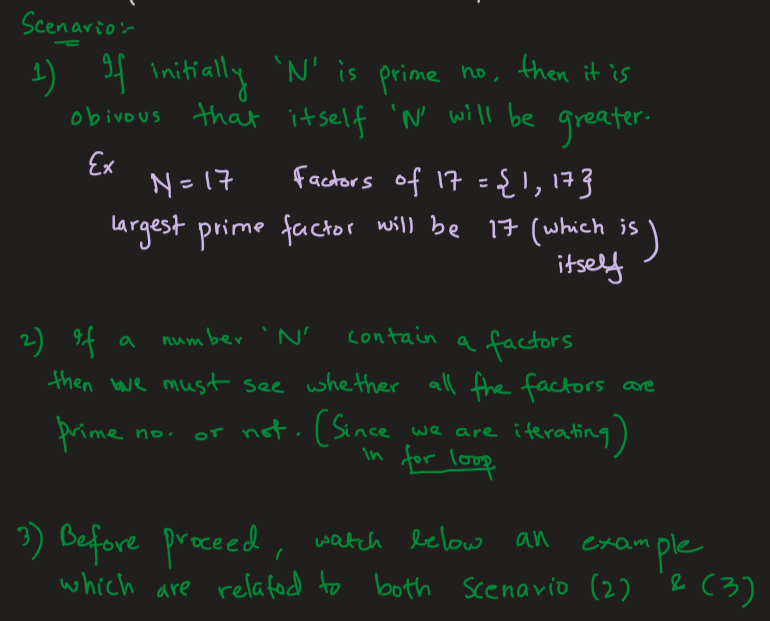 Scenario:-
1) If initially 'N' is prime no, then it is
obivous that itself 'N' will be greater.
Ex N = 17 Factors of 17 = {1, 17}
largest prime factor will be 17 (which is
itself)
2) If a number 'N' contain a factors
then we must see whether all the factors are
prime no. or not. (Since we are iterating)
in for loop
3) Before proceed, watch below an example
which are related to both Scenario (2) & (3)